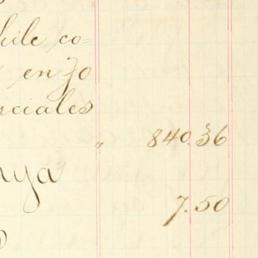 hile co-
en 30
rciales
" 840.36
ya
7.50